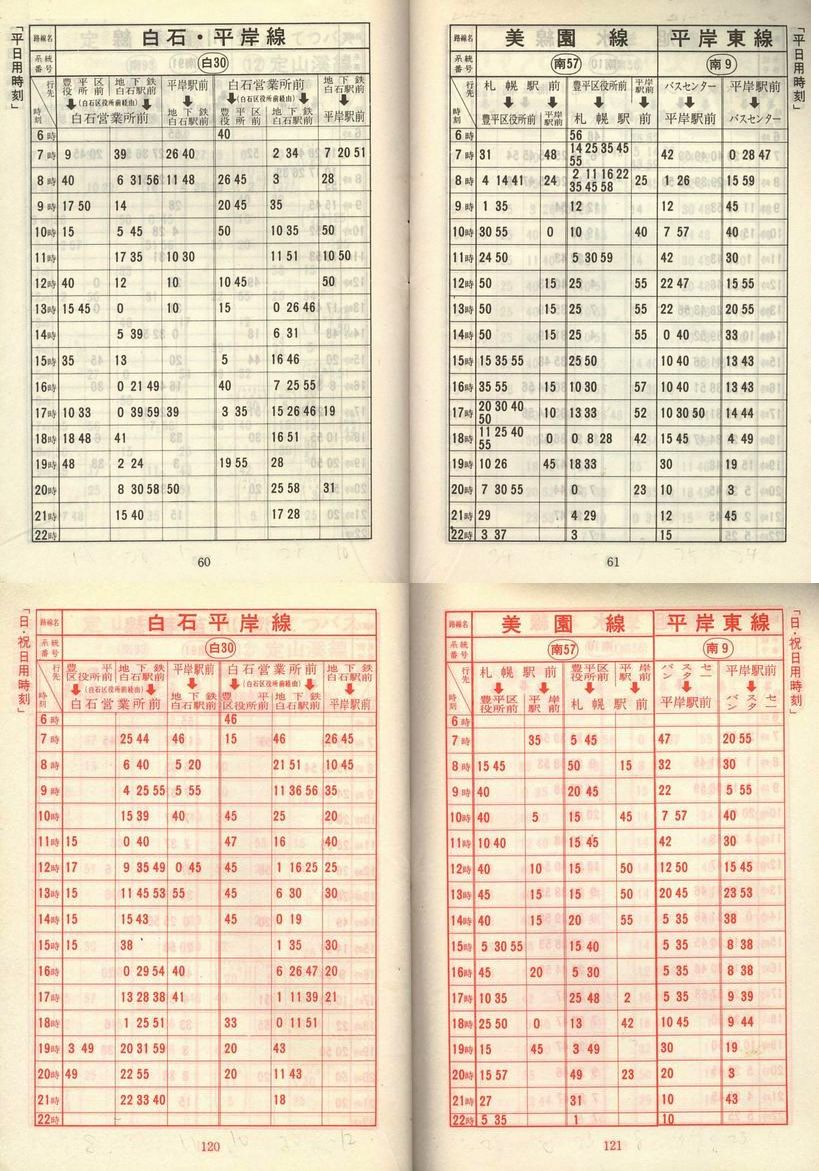 「平日用時刻」
路線名 白石・平岸線
系統番号 白30
行先 時刻 豊平区役所前 地下鉄白石駅前 (白石区役所前経由) 白石営業所前 平岸駅前 地下鉄白石駅前 白石営業所前 (白石区役所前経由) 豊平区役所前 地下鉄白石駅前 地下鉄白石駅前 平岸駅前
6時 40
7時 9 39 26 40 52 2 34 7 20 51
8時 40 6 31 56 11 48 26 45 3 28
9時 17 50 14 20 45 35
10時 15 5 45 50 10 35 50
11時 17 35 10 30 11 51 10 50
12時 40 12 10 10 45 50
13時 15 45 0 10 15 0 26 46
14時 5 39 6 31
15時 35 13 5 16 46
16時 0 21 49 40 7 25 55
17時 10 33 0 39 59 39 3 35 15 26 46 19
18時 18 48 41 16 51
19時 48 2 24 19 55 28
20時 8 30 58 50 25 58 31
21時 15 40 17 28
22時
60
「平日用時刻」
路線名 美園線 平岸東線
系統番号 南57 南9
行先 時刻 札幌駅前 豊平区役所前 平岸駅前 豊平区役所前 平岸駅前 札幌駅前 バスセンター 平岸駅前 平岸駅前 バスセンター
6時 56
7時 31 48 14 25 35 45 55 42 0 28 47
8時 4 14 41 24 2 11 16 22 35 45 58 25 1 26 15 59
9時 1 35 12 12 45
10時 30 55 0 10 40 7 57 40
11時 24 50 5 30 59 42 30
12時 50 15 25 55 22 47 15 55
13時 50 15 25 55 22 20 55
14時 50 15 25 55 0 40 33
15時 15 35 55 25 50 10 40 13 43
16時 35 55 15 10 30 57 10 40 13 43
17時 20 30 40 50 10 13 33 52 10 30 50 14 44
18時 11 25 40 55 0 0 8 28 42 15 45 4 49
19時 10 26 45 18 33 30 19
20時 7 30 55 0 23 10 3
21時 29 4 29 12 45
22時 3 37 3 15
61
「日・祝日用時刻」
路線名 白石平岸線
系統番号 白30
行先 時刻 豊平区役所前 地下鉄白石駅前 (白石区役所前経由) 白石営業所前 平岸駅前 地下鉄白石駅前 白石営業所前 (白石区役所前経由) 豊平区役所前 地下鉄白石駅前 地下鉄白石駅前 平岸駅前
6時 46
7時 25 44 46 15 46 26 45
8時 6 40 5 20 21 51 10 45
9時 4 25 55 5 55 11 36 56 35
10時 15 39 40 45 25 20
11時 15 0 40 47 16 40
12時 17 9 35 49 0 45 45 1 16 25 25
13時 15 11 45 53 55 45 6 30 30
14時 15 15 43 45 0 19
15時 15 38 1 35 30
16時 0 29 54 40 6 26 47 20
17時 13 28 38 41 1 11 39 21
18時 1 25 51 33 0 11 51
19時 3 49 20 31 59 20 43
20時 49 22 55 20 11 43
21時 22 33 40 18
22時
120
「日・祝日用時刻」
路線名 美園線 平岸東線
系統番号 南57 南9
行先 時刻 札幌駅前 豊平区役所前 平岸駅前 豊平区役所前 平岸駅前 札幌駅前 バスセンター 平岸駅前 平岸駅前 バスセンター
6時
7時 35 5 45 47 20 55
8時 15 45 50 15 32 30
9時 40 20 45 22 5 55
10時 40 5 15 45 7 57 40
11時 10 40 15 45 42 30
12時 40 10 15 50 12 50 15 45
13時 45 15 15 50 20 45 23 53
14時 40 15 20 55 5 35 38
15時 5 30 55 15 40 5 35 8 38
16時 45 20 5 30 5 35 8 38
17時 10 35 25 48 2 5 35 9 39
18時 25 50 0 13 42 10 45 9 44
19時 15 45 3 49 30 19
20時 15 57 49 23 20 3
21時 27 31 10 43
22時 5 35 1 10
121